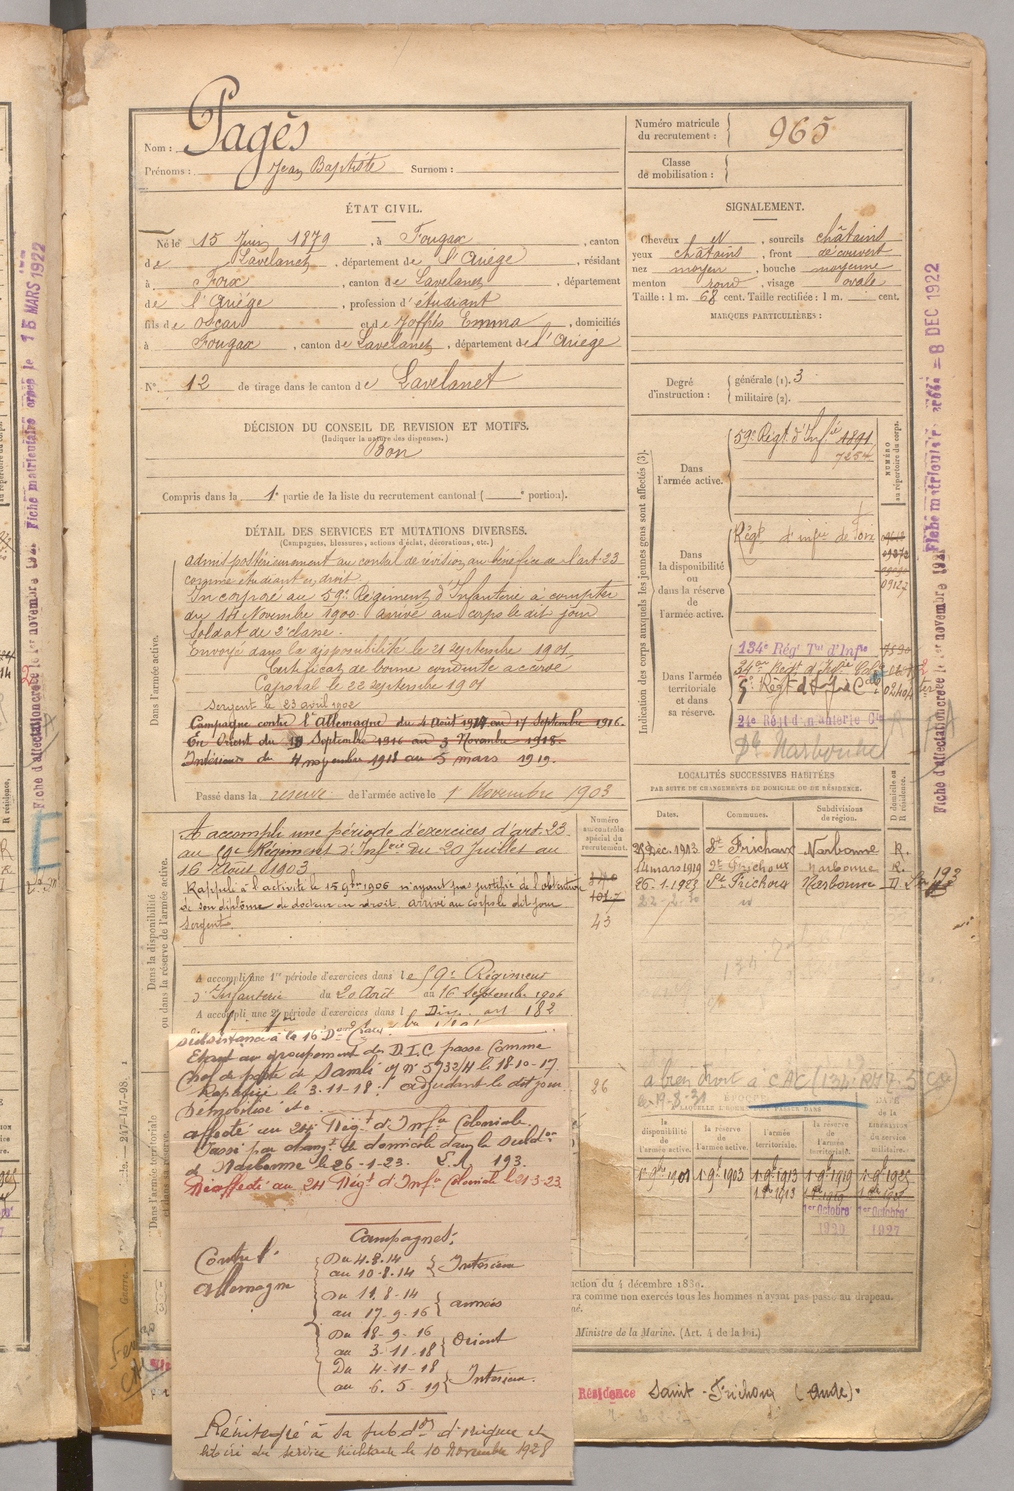 Nom : Pagès
Prénoms : Jean Baptiste Surnom :
Numéro matricule
du recrutement : 965
Classe
de mobilisation :
ÉTAT CIVIL.
Né le 15 Juin 1879, à Fougax, canton
de Lavelanet, département de l'Ariège, résidant
à Foix, canton de Lavelanet, département
de l'Ariége, profession d'étudiant
fils de Oscar et de Joffrès Emma, domiciliés
à Fougax, canton de Lavelanet, département de l'Ariège
N° 12 de tirage dans le canton de Lavelanet
SIGNALEMENT.
Cheveux et N, sourcils châtains
yeux châtains, front découvert
nez moyen, bouche moyenne
menton rond, visage ovale
Taille : 1 m. 68 cent. Taille rectifiée : 1 m. cent.
MARQUES PARTICULIÈRES :
Degré
d'instruction :
générale (1). 3
militaire (2).
DÉCISION DU CONSEIL DE REVISION ET MOTIFS.
(Indiquer la nature des dispenses.)
Bon
Compris dans la 1e partie de la liste du recrutement cantonal ( e portion).
DÉTAIL DES SERVICES ET MUTATIONS DIVERSES.
(Campagnes, blessures, actions d'éclat, décorations, etc.)
Dans l'armée active.
admis postérieurement au conseil de révision au bénéfice de l'art. 23
comme étudiant en droit.
Incorporé au 59e Régiment d'Infanterie à compter
du 14 Novembre 1900 arrivé au corps le dit jour
soldat de 2e classe.
Envoyé dans la disponibilité le 21 septembre 1901.
Certificat de bonne conduite accordé
Caporal le 22 septembre 1901
Sergent le 23 avril 1902
Campagne contre l'Allemagne du 4 Août 1914 au 17 Septembre 1916.
En Orient du 18 Septembre 1916 au 3 Novembre 1918.
Intérieur du 4 novembre 1918 au 5 mars 1919.
Passé dans la réserve de l'armée active le 1 Novembre 1903
Dans la disponibilité
ou dans la réserve de l'armée active.
A accompli une période d'exercices d'art. 23
au 59e Régiment d'Infrie du 20 Juillet au
16 Août 1903
Rappelé à l'activité le 15 9bre 1906 n'ayant pas justifié de l'obtention
de son diplôme de docteur en droit. arrivé au corps le dit jour
sergent.
A accompli une 1re période d'exercices dans le 59e Régiment
d'Infanterie du 20 Août au 16 Septembre 1906
A accompli une 2e période d'exercices dans l
Numéro
au contrôle
spécial du
recrutement.
43
26
Indication des corps auxquels les jeunes gens sont affectés (3).
NUMÉRO
au répertoire du corps.
Dans
l'armée active.
59e Régt d'Infie 1891
7254
Dans
la disponibilité
ou
dans la réserve
de
l'armée active.
Régt d'infie de Foix
09127
Dans l'armée
territoriale
et dans
sa réserve.
134e Régt Ter d'Infie
24e Régt d'Infanterie Cle
Dt Narbonne
LOCALITÉS SUCCESSIVES HABITÉES
PAR SUITE DE CHANGEMENTS DE DOMICILE OU DE RÉSIDENCE.
Dates. Communes. Subdivisions
de région. D domicile ou
R résidence.
28 Déc. 1913 St Frichoux Narbonne R.
14 mars 1919 St Frichoux Narbonne R.
26.1.1923 St Frichoux Narbonne D.
22-2-30
a bien droit à CAC
la
disponibilité
de
l'armée active.
la réserve
de
l'armée active.
l'armée
territoriale.
la réserve
de
l'armée
territoriale.
DATE
de la
libération
du service
militaire.
1er 9bre 1901 1er 9bre 1903 1er 9bre 1913 1er 9bre 1919 1er 9bre 1925
1er Octobre
1927
subsistance à la 16 Don
passé comme
Chef de poste de Samli o/ n° 5732/4 le 18-10-17.
Rapatrié le 3-11-18. adjudant le dit jour
Démobilisé
affecté au 24 Régt d'Infie Coloniale.
Passé par changt de domicile dans la subdon
de Narbonne le 26-1-23. L.R. 193.
Réaffecté au 24 Régt d'Infie Coloniale le 21-3-23
Campagnes :
Contre l'
allemagne
Du 4.8.14
au 10-8-14 Intérieur
Du 11.8-14
au 17-9-16 armées
Du 18-9-16
au 3-11-18 Orient
Du 4-11-18
au 6.5-19 Intérieur.
Réintégré à sa subdon d'origine et
libéré du service militaire le 10 Novembre 1928
ction du 4 décembre 1889.
ra comme non exercés tous les hommes n'ayant pas passé au drapeau.
Ministre de la Marine. (Art. 4 de la loi.)
Résidence Saint-Frichoux (Aude).
Fiche matriculaire créée le 15 MARS 1922
Fiche d'affectation créée le 1er novembre
Fiche matriculaire créée - 8 DEC 1922
Fiche d'affectation créée le 1er novembre